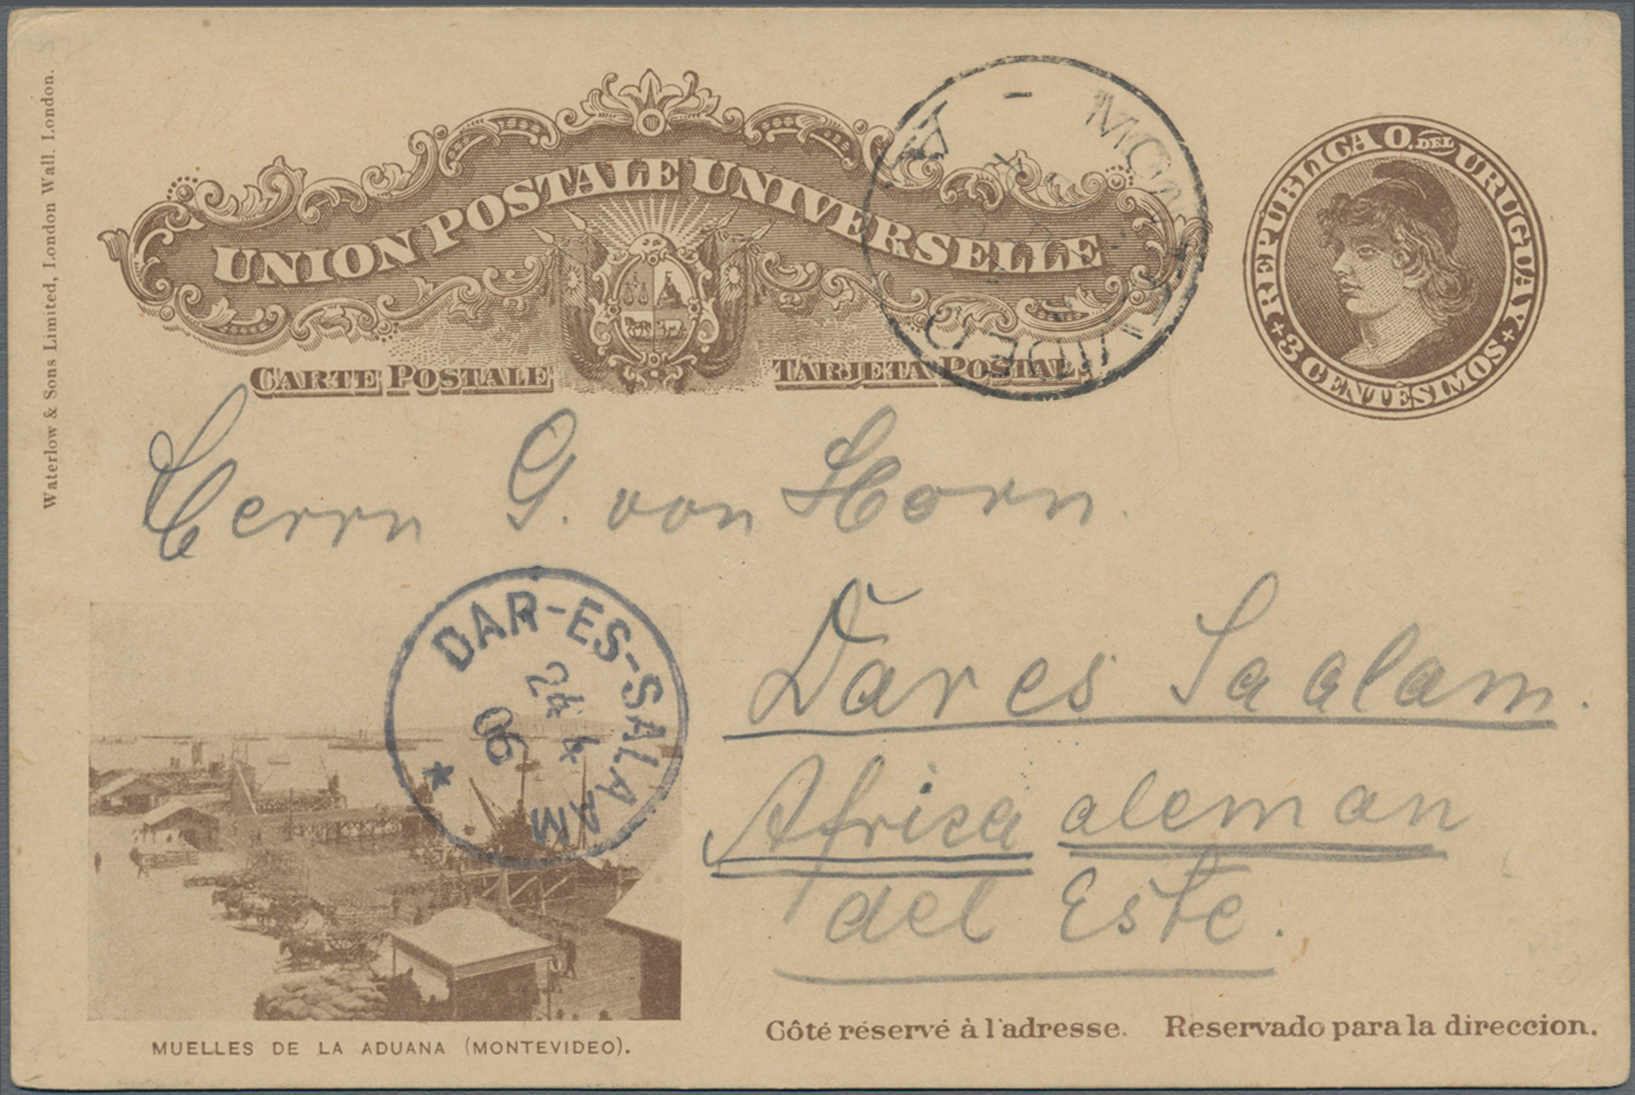 Waterlow & Sons Limited, London Wall, London.
UNION POSTALE UNIVERSELLE
CARTE POSTALE TARJETA POSTAL.
MONTEVIDEO
REPUBLICA O. DEL URUGUAY
3 CENTÉSIMOS
Herrn G. von Horn.
DAR-ES-SALAAM
24 4
06
Dar es Saalam.
Africa aleman
del Este.
MUELLES DE LA ADUANA (MONTEVIDEO).
Côté réservé à l'adresse. Reservado para la direccion.